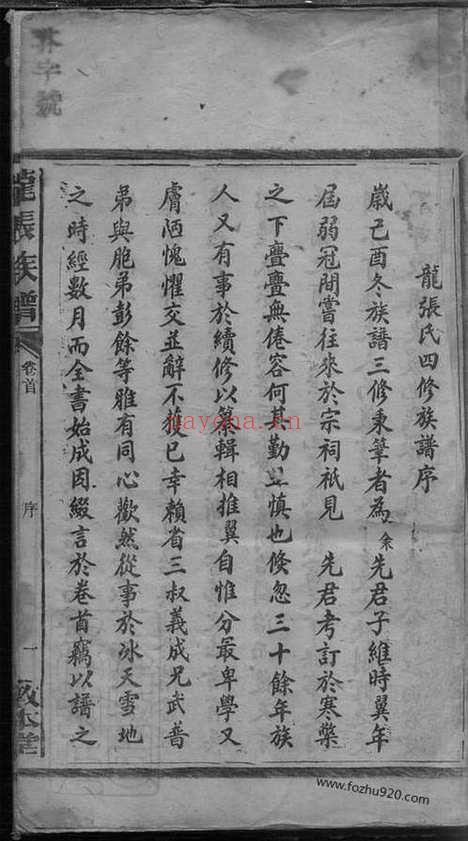 龍張氏四修族譜序
歲己酉冬族譜三修秉筆者為余先君子維時翼年
屆弱冠間嘗往來於宗祠祇見 先君考訂於寒檠
之下亹亹無倦容何其勤且慎也倏忽三十餘年族
人又有事於續修以纂輯相推翼自惟分最卑學又
膚陋愧懼交並辭不獲已幸賴省三叔義成兄武普
弟與胞弟彭餘等雅有同心歡然從事於冰天雪地
之時經數月而全書始成因綴言於卷首竊以譜之
龍張族譜
卷首
序
一
敦本堂
字號
nayona.cn
www.fozhu920.com